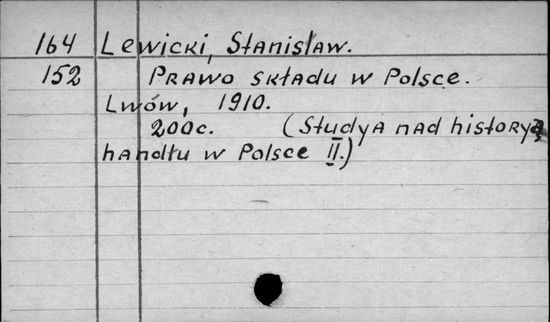 164 Lewicki, Stanisław.
152 Prawo składu w Polsce.
Lwów, 1910.
200c. (Studya nad historyą
handlu w Polsce II.)